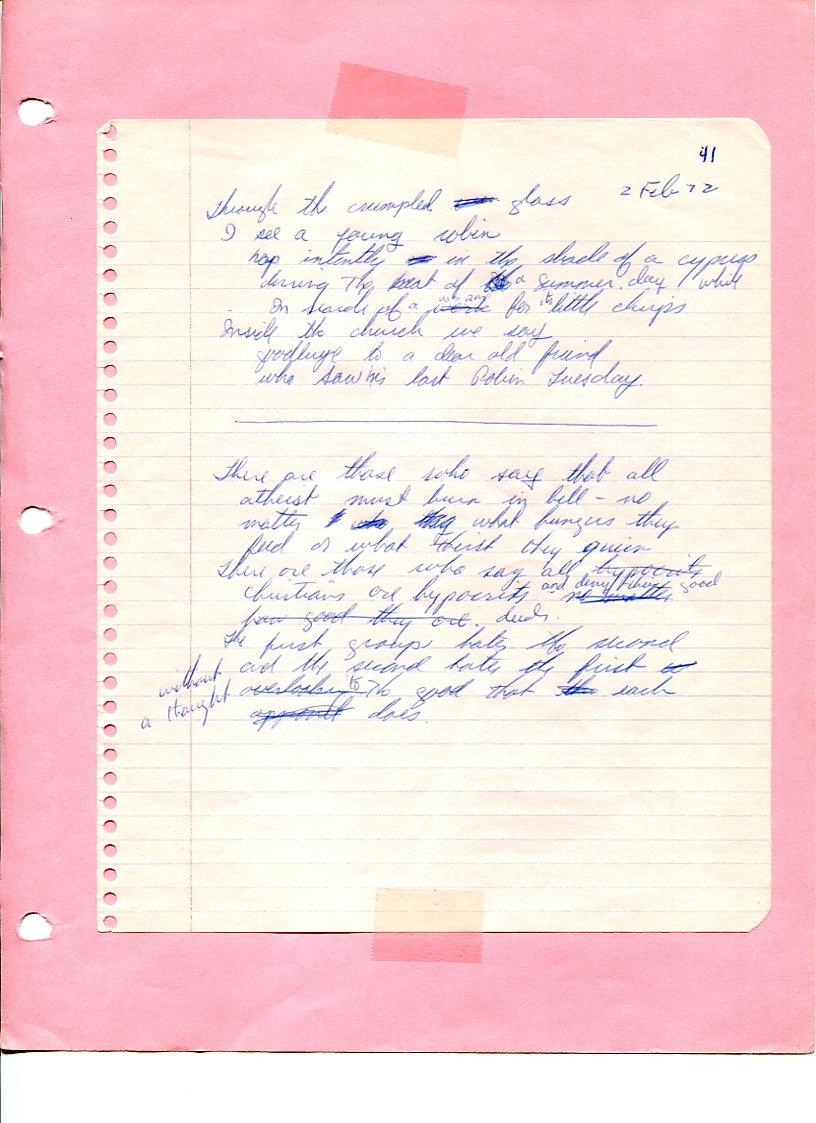 41
2 Feb 72
Through the crumpled glass
I see a young robin
hop intently in the shade of a cypress
during the heat of a summer day while
In search of a worm for its little chirps
Inside the church we say
goodbye to a dear old friend
who saw his last Robin Tuesday.
There are those who say that all
atheist must burn in hell - no
matter what hungers they
feed or what thirst they quien
There are those who say all hypocrits
christians are hypocrits and deny their good
no matter
how good they are. deeds.
The first groups hates the second
and the second hates the first
without a thought overlooking to the good that the each
opponent does.